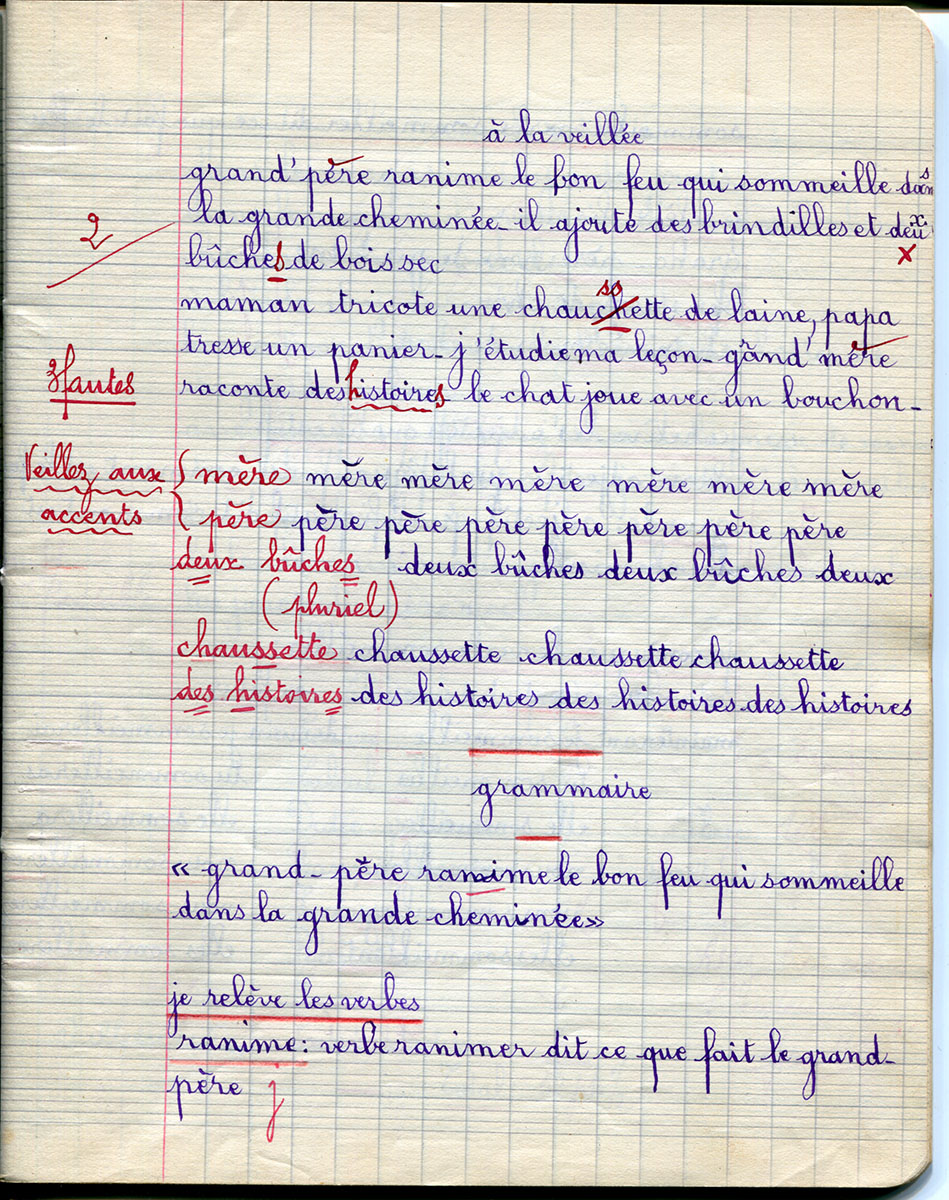 à la veillée
grand'père ranime le bon feu qui sommeille dans
la grande cheminée - il ajoute des brindilles et deux
2
bûches de bois sec
x
maman tricote une chaussette de laine, papa
tresse un panier - j'étudie ma leçon - grand'mère
3 fautes
raconte des histoires le chat joue avec un bouchon -
Veillez aux { mère mère mère mère mère mère mère
accents { père père père père père père père père
deux bûches deux bûches deux bûches deux
(pluriel)
chaussette chaussette chaussette chaussette
des histoires des histoires des histoires des histoires
grammaire
« grand-père ranime le bon feu qui sommeille
dans la grande cheminée »
je relève les verbes
ranime : verbe ranimer dit ce que fait le grand-
père j